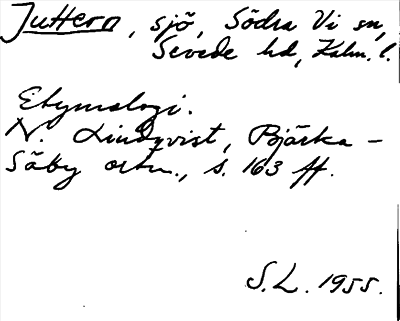 Juttern, sjö, Södra Vi sn,
Sevede hd, Kalm. l.
Etymologi.
N. Lindqvist, Bjärka-
Säby ortn., s. 163 ff.
S.L. 1955.